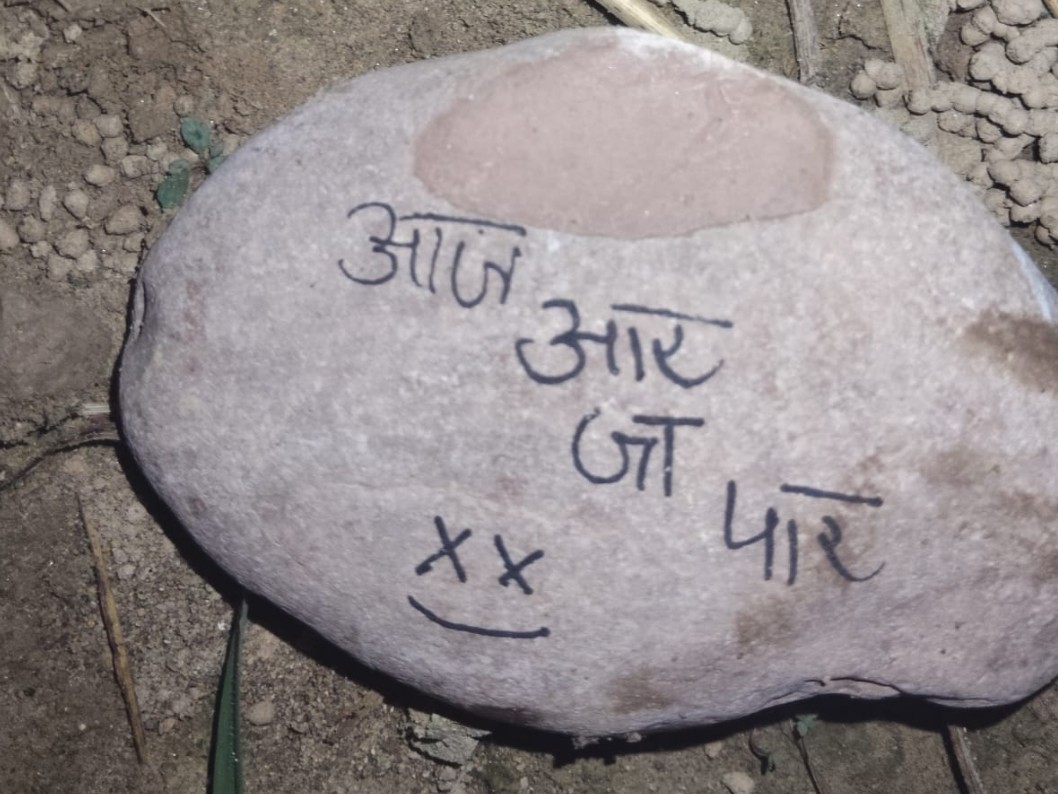 आज
आर
जा
पार